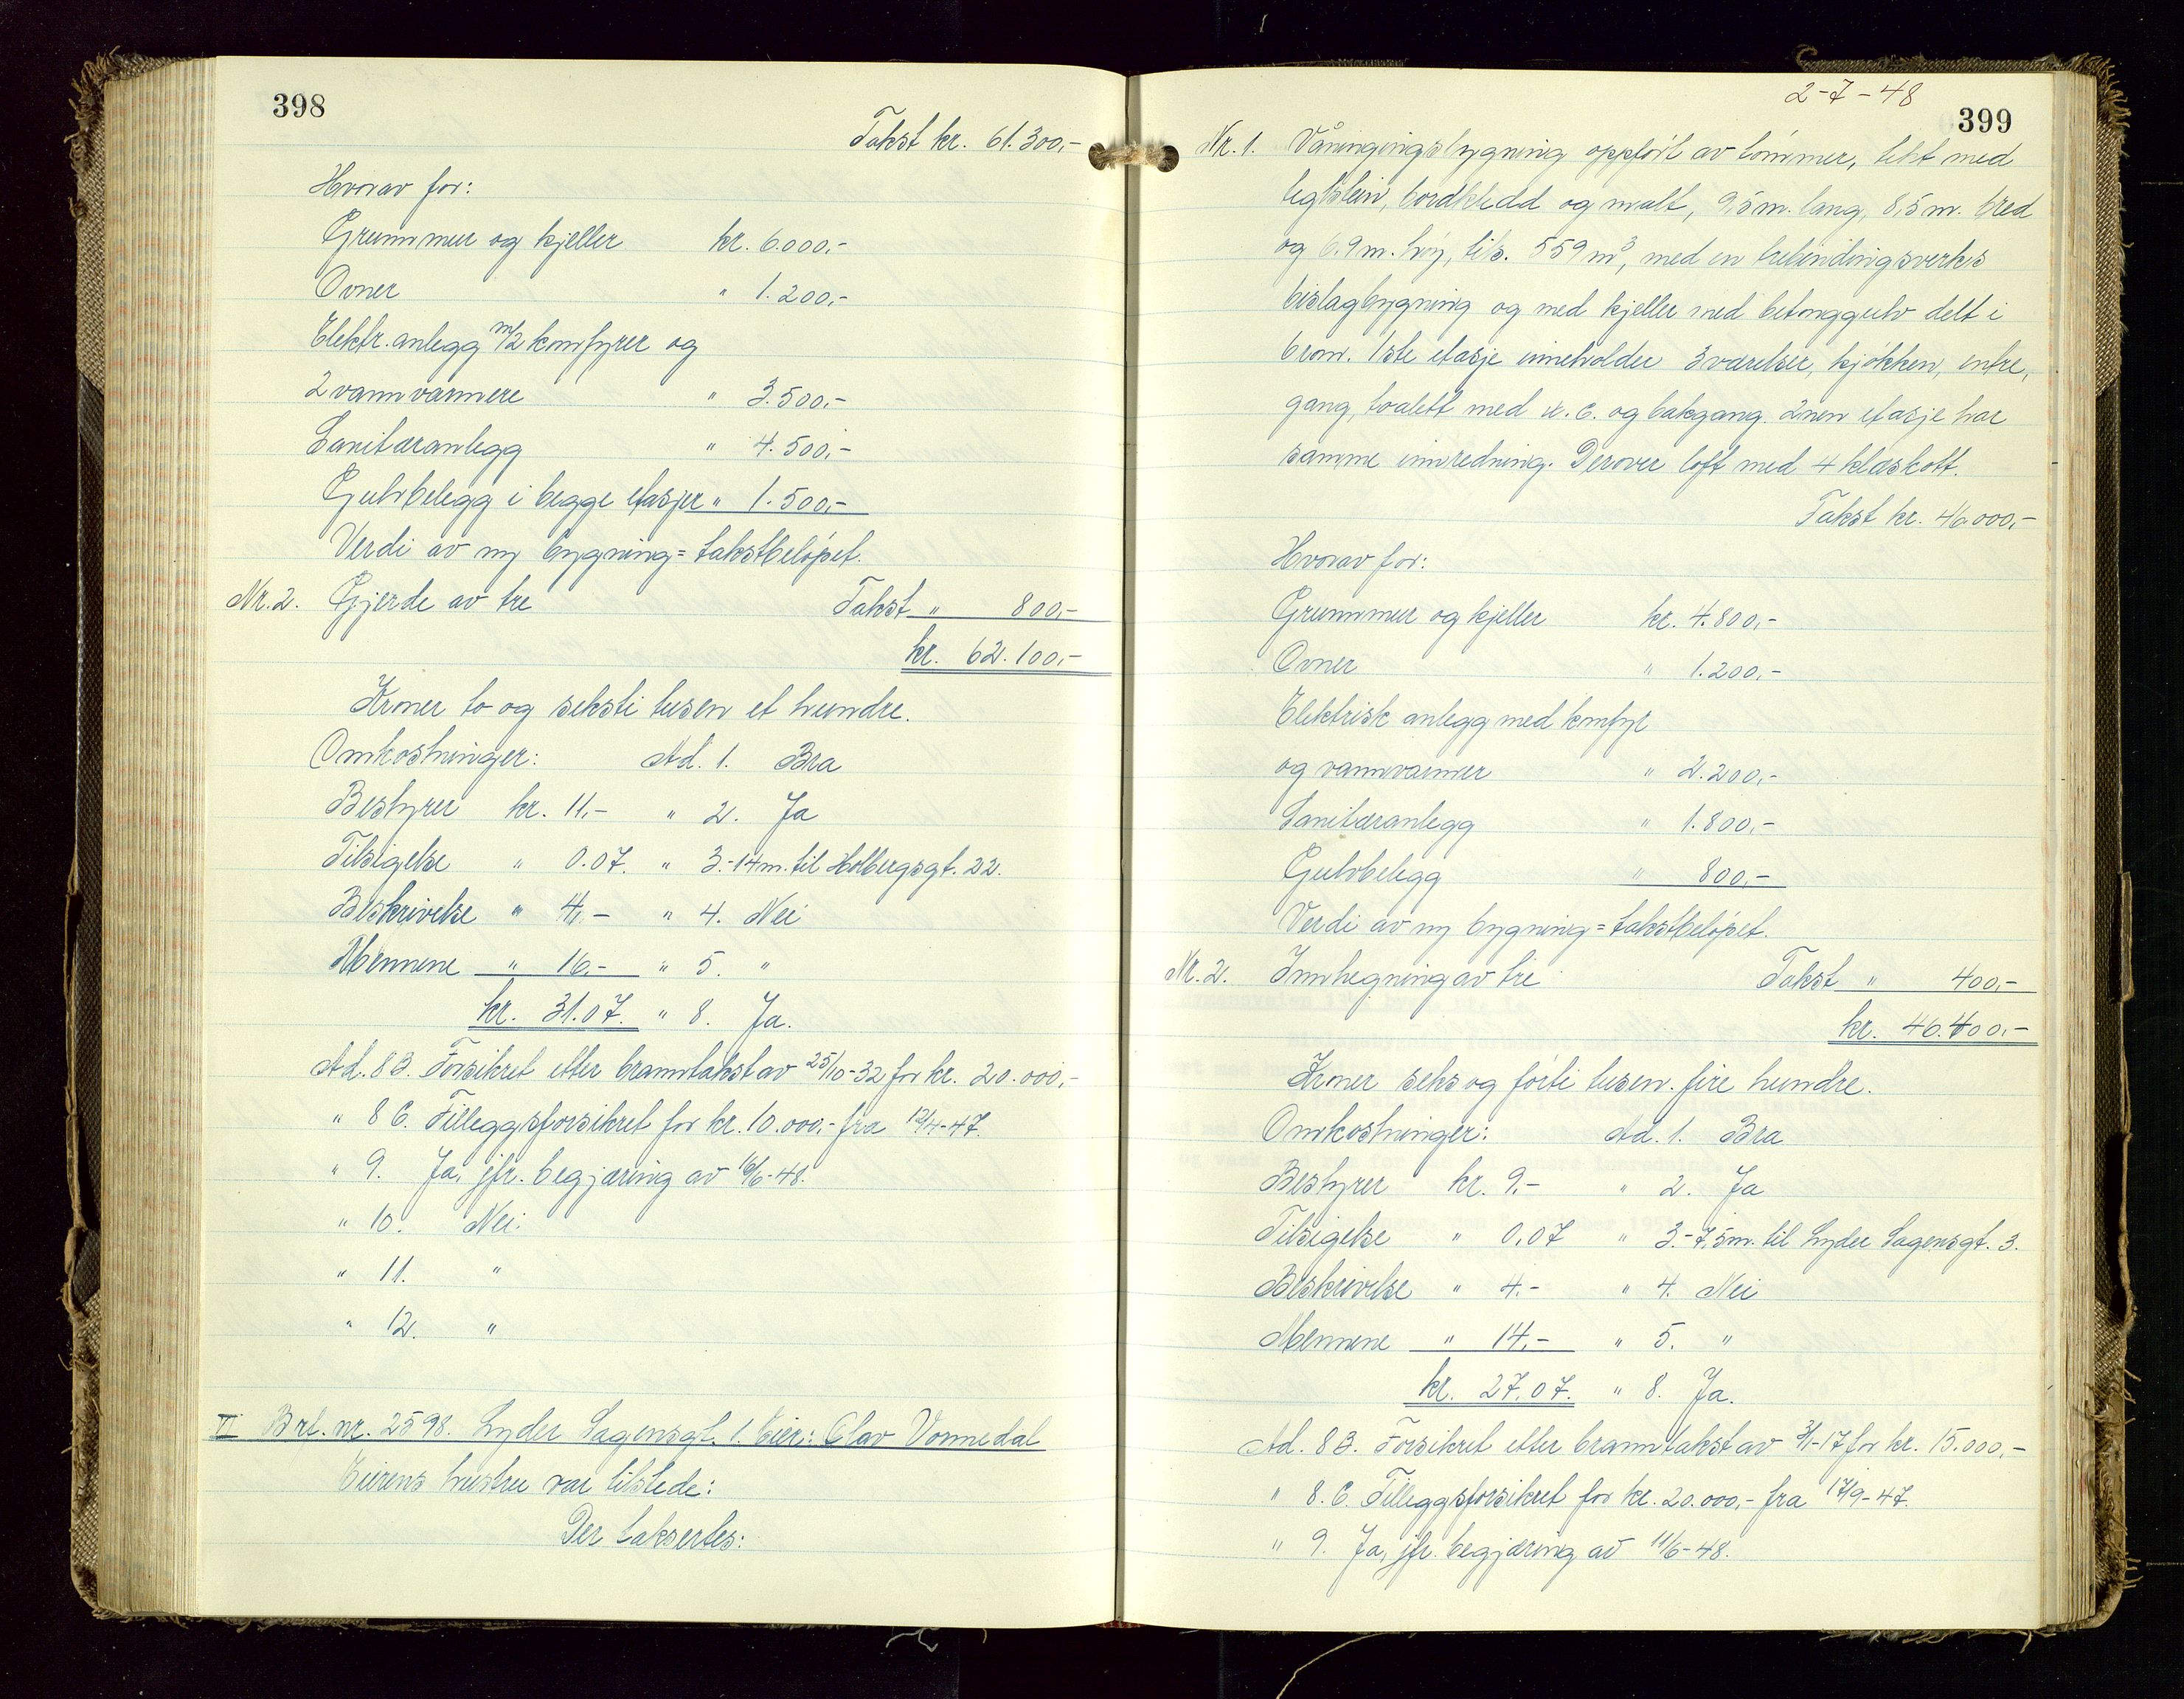 398
Takst kr. 61.300,-
Hvorav for:
Grunnmur og kjeller kr. 6.000,-
Ovner " 1.200,-
Elektr. anlegg m/2 komfyrer og
2 vannvarmere " 3.500,-
Sanitæranlegg " 4.500,-
Gulvbelegg i begge etasjer " 1.500,-
Verdi av ny bygning = takstbeløpet.
Nr. 2. Gjerde av tre Takst " 800,-
kr. 62.100,-
Kroner to og seksti tusen et hundre.
Omkostninger: Ad. 1. Bra
Bestyrer kr. 11,- " 2. Ja
Tilsigelse " 0.07. " 3.-14m. til Holbergsgt. 22.
Beskrivelse " 4,- " 4. Nei
Mennene " 16,- " 5. "
kr. 31.07. " 8. Ja.
Ad. 8B. Forsikret etter branntakst av 25/10-32 for kr. 20.000,-
" 8C. Tilleggsforsikret for kr. 10.000,- fra 12/4-47.
" 9. Ja, jfr. begjæring av 16/6-48.
" 10. Nei.
" 11. "
" 12. "
VI Brl. nr. 2598. Lyder Sagensgt. 1. Eier: Olav Vonnedal
Eierens hustru var tilstede:
Der taksertes:
2-7-48
399
Nr. 1. Våningingsbygning oppført av tømmer, tekt med
teglstein, bordkledd og malt, 9,5 m. lang, 8,5 m. bred
og 6.9 m. høy, tils. 559 m3, med en trebindingsverks
bislagbygning og med kjeller med betonggulv delt i
6 rom. 1ste etasje inneholder 3 værelser, kjøkken, entre,
gang, toalett med w.c. og bakgang. 2nen etasje har
samme innredning. Derover loft med 4 klæskott.
Takst kr. 46.000,-
Hvorav for:
Grunnmur og kjeller kr. 4.800,-
Ovner " 1.200,-
Elektrisk anlegg med komfyr
og vannvarmer " 2.200,-
Sanitæranlegg " 1.800,-
Gulvbelegg " 800,-
Verdi av ny bygning = takstbeløpet.
Nr. 2. Innhegning av tre Takst " 400,-
kr. 46.400,-
Kroner seks og førti tusen fire hundre.
Omkostninger: Ad. 1. Bra
Bestyrer kr. 9,- " 2. Ja
Tilsigelse " 0,07 " 3.-7,5m. til Lyder Sagensgt. 3.
Beskrivelse " 4.- " 4. Nei
Mennene " 14,- " 5. "
kr. 27.07. " 8. Ja.
Ad. 8B. Forsikret etter branntakst av 3/1-17 for kr. 15.000,-
" 8.C. Tilleggsforsikret for kr. 20.000,- fra 17/9-47.
" 9. Ja, jfr. begjæring av 11/6-48.